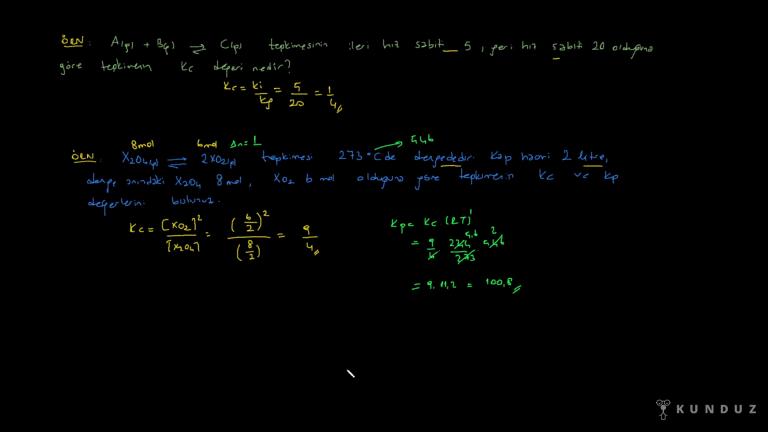 ÖRN: A(g) + B(g) ⇌ C(g) tepkimesinin ileri hız sabit 5, geri hız sabit 20 olduğuna
göre tepkimenin Kc değeri nedir?
Kc = ki/kg = 5/20 = 1/4
8mol 6mol Δn=1 546
ÖRN: X2O4(g) ⇌ 2XO2(g) tepkimesi 273°C de dengededir. Kap hacmi 2 litre,
denge anındaki X2O4 8 mol, XO2 6 mol olduğuna göre tepkimenin Kc ve Kp
değerlerini bulunuz.
Kc = [XO2]²/[X2O4] = (6/2)²/(8/2) = 9/4
Kp = Kc (RT)¹
= 9/4 22,4/273 546 5,6 2
= 9.11,2 = 100,8
KUNDUZ